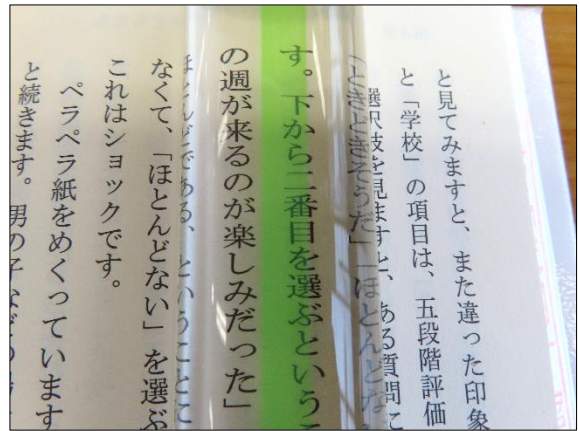 と見てみますと、また違った印象
と「学校」の項目は、五段階評価
選択肢を見ますと、ある質問こ
「ときときそうだ」「ほとんどな
す。下から二番目を選ぶという
の週が来るのが楽しみだった」
ほとんどである、ということこ
なくて、「ほとんどない」を選ぶ
これはショックです。
ペラペラ紙をめくっています
と続きます。男の子などの